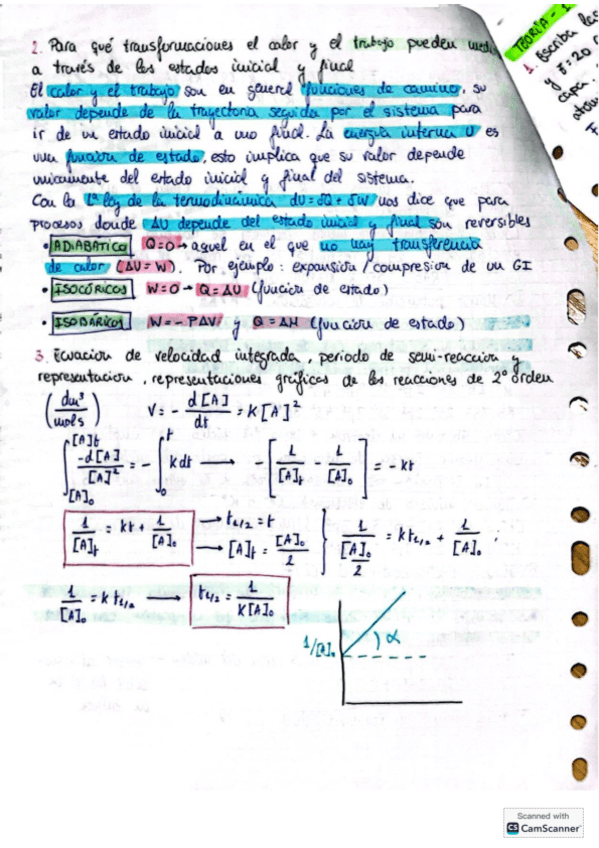 2. Para qué transformaciones el calor y el trabajo pueden
a través de los estados inicial y final
El calor y el trabajo son en general funciones de camino, su
valor depende de la trayectoria seguida por el sistema para
ir de un estado inicial a uno final. La energía interna U es
una función de estado, esto implica que su valor depende
unicamente del estado inicial y final del sistema.
Con la 1ª ley de la termodinámica dU = δQ + δW nos dice que para
procesos donde ΔU depende del estado inicial y final son reversibles
• ADIABATICO Q=0 → aquel en el que no hay transferencia
de calor (ΔU = W). Por ejemplo: expansión / compresion de un GI
• ISOCÓRICOS W=0 → Q = ΔU (función de estado)
• ISOBÁRICOS W = -PΔV y Q = ΔH (función de estado)
3. Ecuación de velocidad integrada, periodo de semi-reacción y
representación, representaciones gráficas de las reacciones de 2º orden
(dm³/mol s) V = - d[A]/dt = K[A]²
∫[A]₀^[A]t -d[A]/[A]² = - ∫₀^t kdt → -[1/[A]t - 1/[A]₀] = -kt
1/[A]t = kt + 1/[A]₀ → t₁/₂ = t → [A]t = [A]₀/2 } 1/([A]₀/2) = kt₁/₂ + 1/[A]₀ ;
1/[A]₀ = k t₁/₂ → t₁/₂ = 1/K[A]₀
1/[A]₀ α
TEORÍA - 1
1. Escriba las
y z=20
capa.
Scanned with
CS CamScanner